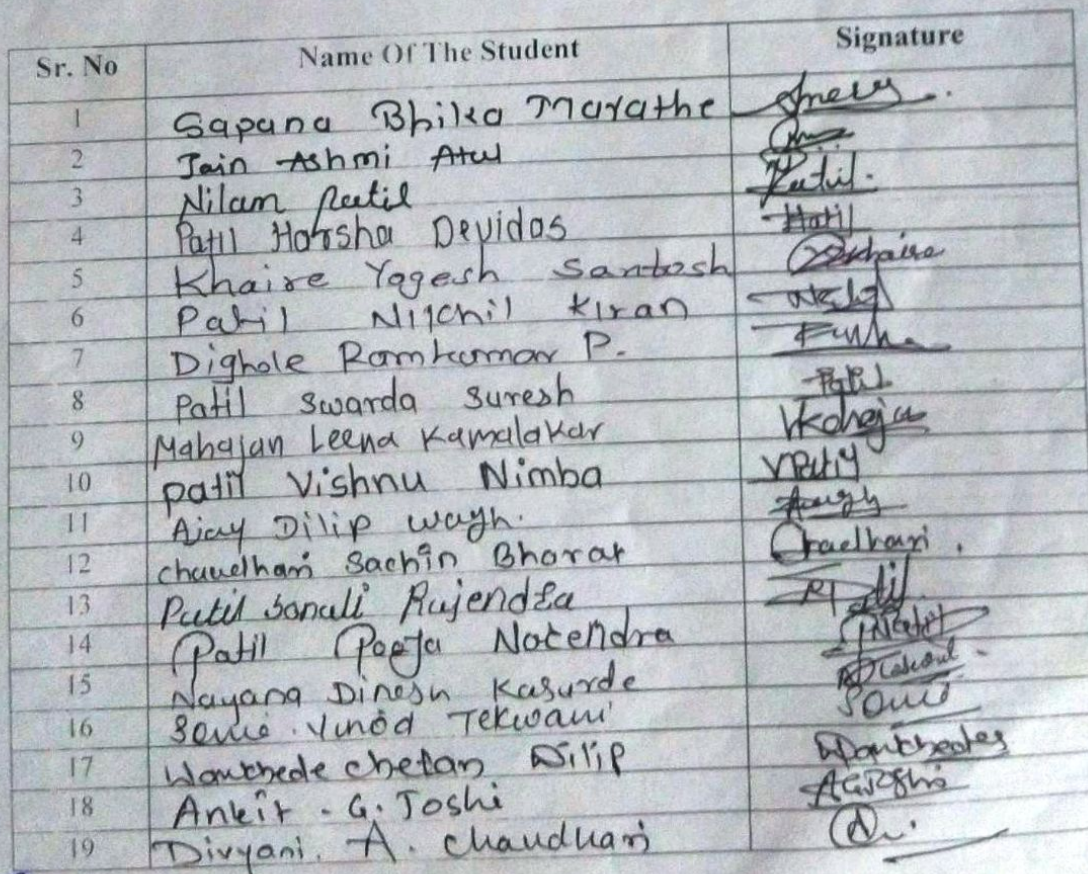 Sr. No Name Of The Student Signature
1 Sapana Bhika Marathe
2 Jain Ashmi Atul
3 Nilam Patil Patil.
4 Patil Harsha Devidas Hatil
5 Khaire Yogesh Santosh Khaire
6 Patil Nikhil Kiran
7 Dighole Ramkumar P.
8 Patil Swarda Suresh Patil
9 Mahajan Leena Kamalakar
10 Patil Vishnu Nimba VPatil
11 Ajay Dilip Wagh.
12 Chaudhari Sachin Bharat Chaudhari.
13 Patil Sonali Rajendra
14 Patil Pooja Natendra
15 Nayana Dinesh Kasurde
16 Vinod Tekwani
17 Wankhede Chetan Dilip Wankhede
18 Ankit . G. Joshi AGJoshi
19 Divyani. A. Chaudhari